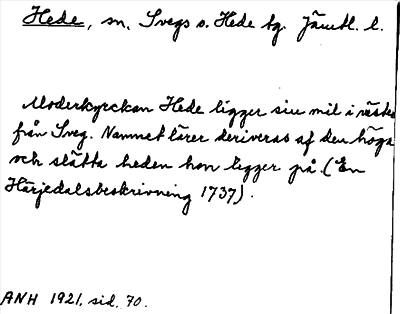 Hede, sn, Svegs o. Hede tg. Jämtl. l.
Moderkyrckan Hede ligger siu mil i väster
från Sveg. Namnet lärer deriveras af den höga
och slätta heden hon ligger på. (En
Härjedalsbeskrivning 1737).
ANH 1921, sid. 70.